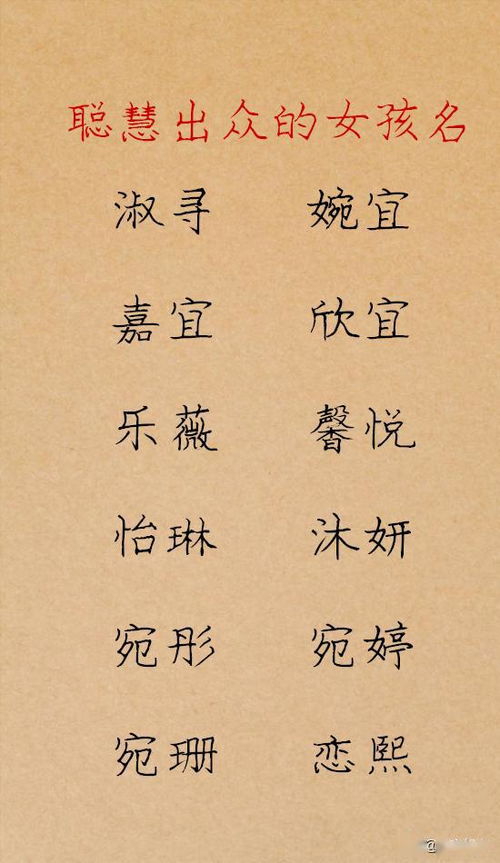 聪慧出众的女孩名
淑寻 婉宜
嘉宜 欣宜
乐薇 馨悦
怡琳 沐妍
宛彤 宛婷
宛珊 恋熙
@